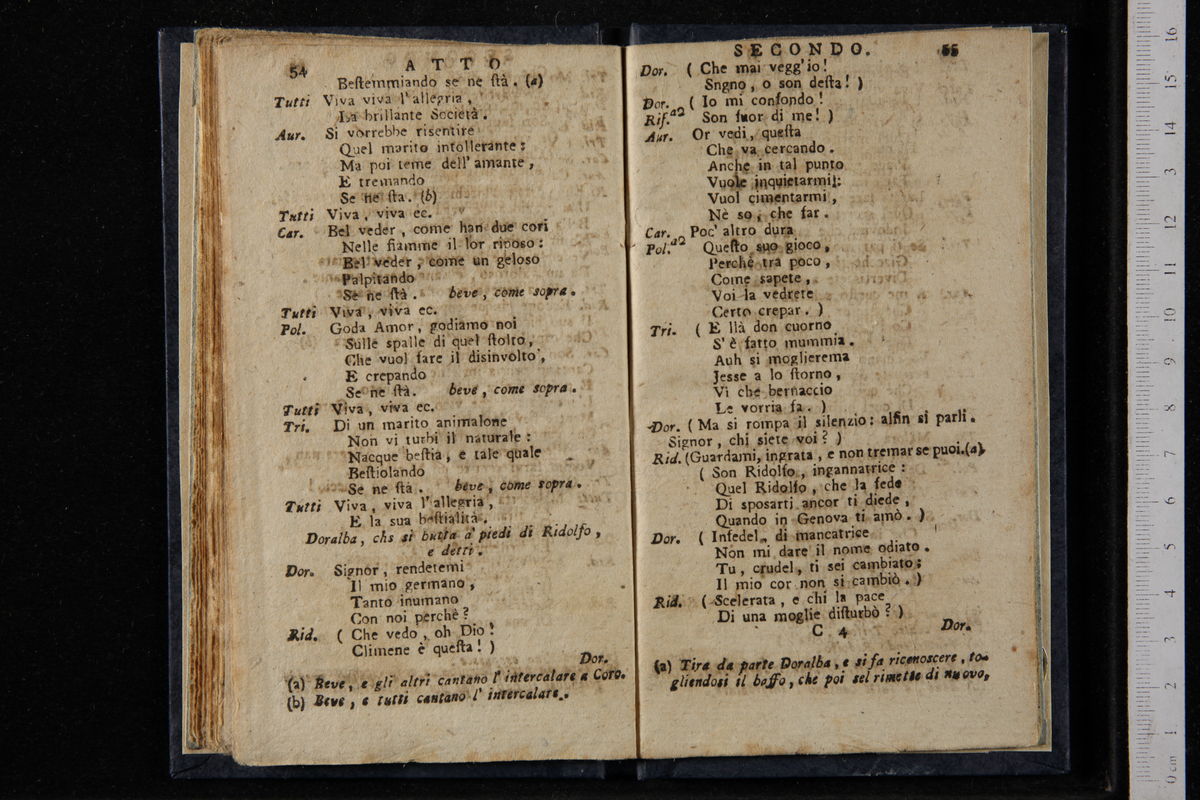 54
ATTO
Bestemmiando se ne stà. (a)
Tutti Viva viva l'allegria,
La brillante Società.
Aur. Si vorrebbe risentire
Quel marito intollerante:
Ma poi teme dell'amante,
E tremando
Se ne sta. (b)
Tutti Viva, viva ec.
Car. Bel veder, come han due cori
Nelle fiamme il lor riposo:
Bel veder, come un geloso
Palpitando
Se ne stà. beve, come sopra.
Tutti Viva, viva ec.
Pol. Goda Amor, godiamo noi
Sulle spalle di quel stolto,
Che vuol fare il disinvolto,
E crepando
Se ne stà. beve, come sopra.
Tutti Viva, viva ec.
Tri. Di un marito animalone
Non vi turbi il naturale:
Nacque bestia, e tale quale
Bestiolando
Se ne stà. beve, come sopra.
Tutti Viva, viva l'allegria,
E la sua bestialità.
Doralba, chs si butta a' piedi di Ridolfo,
e detti.
Dor. Signor, rendetemi
Il mio germano,
Tanto inumano
Con noi perchè?
Rid. (Che vedo, oh Dio!
Climene è questa!)
Dor.
(a) Beve, e gli altri cantano l'intercalare a Coro.
(b) Beve, e tutti cantano l'intercalare.
SECONDO. 55
Dor. (Che mai vegg'io!
Sngno, o son desta!)
Dor. (Io mi confondo!
Rif. a2 Son fuor di me!)
Aur. Or vedi, questa
Che va cercando.
Anche in tal punto
Vuole inquietarmi:
Vuol cimentarmi,
Nè so, che far.
Car. Poc' altro dura
Pol. a2 Questo suo gioco,
Perchè tra poco,
Come sapete,
Voi la vedrete
Certo crepar.)
Tri. (E llà don cuorno
S'è fatto mummia.
Auh si moglierema
Jesse a lo storno,
Vi che bernaccio
Le vorria fa.)
Dor. (Ma si rompa il silenzio: alfin si parli.
Signor, chi siete voi?)
Rid. (Guardami, ingrata, e non tremar se puoi.(a)
(Son Ridolfo, ingannatrice:
Quel Ridolfo, che la fede
Di sposarti ancor ti diede,
Quando in Genova ti amò.)
Dor. (Infedel, di mancatrice
Non mi dare il nome odiato.
Tu, crudel, ti sei cambiato;
Il mio cor non si cambiò.)
Rid. (Scelerata, e chi la pace
Di una moglie disturbò?)
C 4 Dor.
(a) Tira da parte Doralba, e si fa riconoscere, to-
gliendosi il baffo, che poi sel rimette di nuovo.
0 cm 1 2 3 4 5 6 7 8 9 10 11 12 13 14 15 16